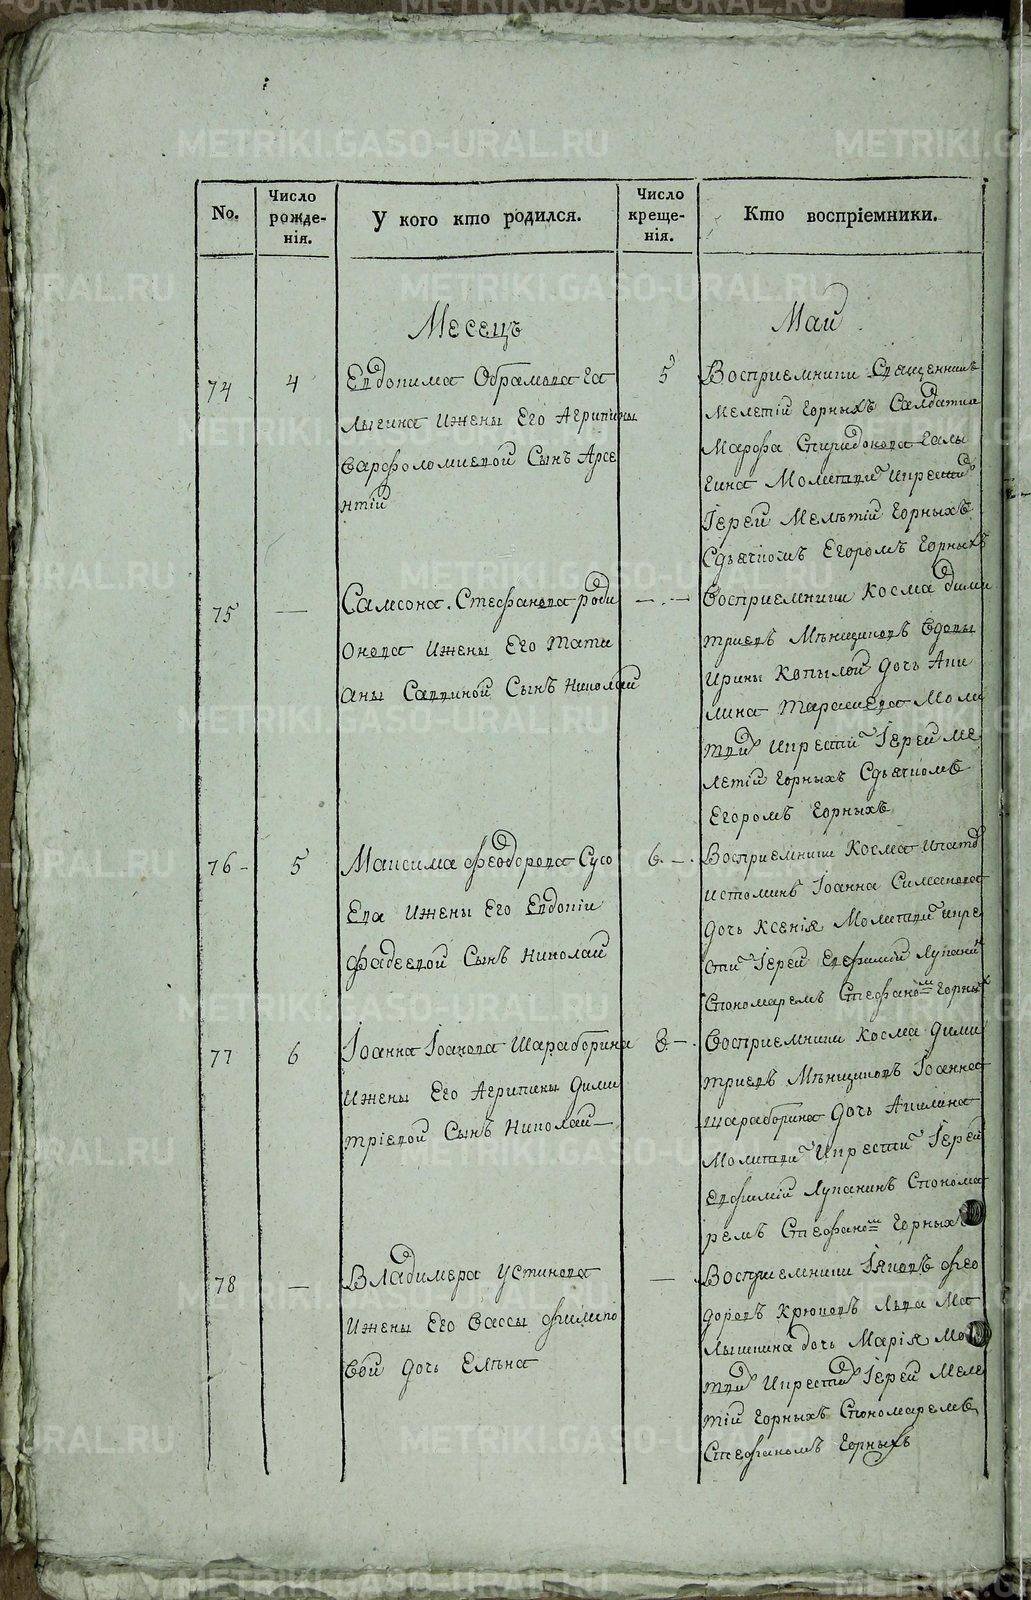 No.
Число рожде- нія.
У кого кто родился.
Число креще- нія.
Кто воспріемники.
Месецъ
Маий
74
4
Евдокима Обрамова Га
лыгина Ижены Его Агрипины
Варфоломиевой Сынъ Арсе
нтій
5
Восприемники Священникъ
Мелетій Горныхъ Салдатка
Марфа Спиридонова Галы
гина Молитви Икрестй
Іерей Мелѣтій Горныхъ
Сдьячкомъ Егоромъ Горныхъ
75
—
Самсона Стефанова Роди
онова Ижены Его Тати
аны Савиной Сынъ Николай
—
Восприемники Косма Дими
триевъ Мѣнщиковъ Вдовы
Ирины Копылой дочь Аки
лина Тараскова Моли
тви Икрестй Іерей Ме
летій Горныхъ Сдьячкомъ
Егоромъ Горныхъ
76
5
Максима Феодорова Сусо
Ева Ижены Его Евдокіи
Фадеевой Сынъ Николай
6
Восприемники Косма Ипатов
Истоминъ Іоанна Симанова
дочь Ксения Молитви Икре
сти Іерей Евфимій Лукани
Спономаремъ Стефаномъ Горных
77
6
Іоанна Іоанова Шараборина
Ижены Его Агрипины Дими
тріевой Сынъ Николай
8
Восприемники Косма Дими
триевъ Мѣнщиковъ Іоанна
Шараборина дочь Акилина
Молитви Икрести Іерей
Евфимій Луканинъ Спонома
ремъ Стефаномъ Горныхъ
78
—
Владимера Устинова
Ижены Его Вассы Филипо
вой дочь Елѣна
—
Восприемники Іяковъ Фео
доровъ Крюковъ Льва Ма
лышкина дочь Марія Мо
тви Икрестй Іерей Меле
тій Горныхъ Спономаремъ
Стефаномъ Горныхъ
METRIKI.GASO-URAL.RU